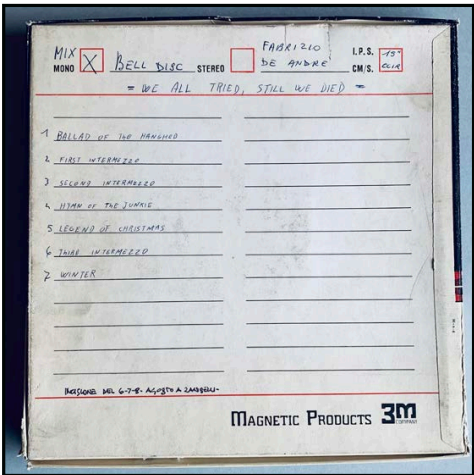 MIX
MONO X BELL DISC STEREO FABRIZIO DE ANDRE' I.P.S. 15"
CM/S. CCIR
= WE ALL TRIED, STILL WE DIED =
1 BALLAD OF THE HANGHED
2 FIRST INTERMEZZO
3 SECOND INTERMEZZO
4 HYMN OF THE JUNKIE
5 LEGEND OF CHRISTMAS
6 THIRD INTERMEZZO
7 WINTER
INCISIONE DEL 6-7-8- AGOSTO A ZANIBELLI-
MAGNETIC PRODUCTS 3M
COMPANY